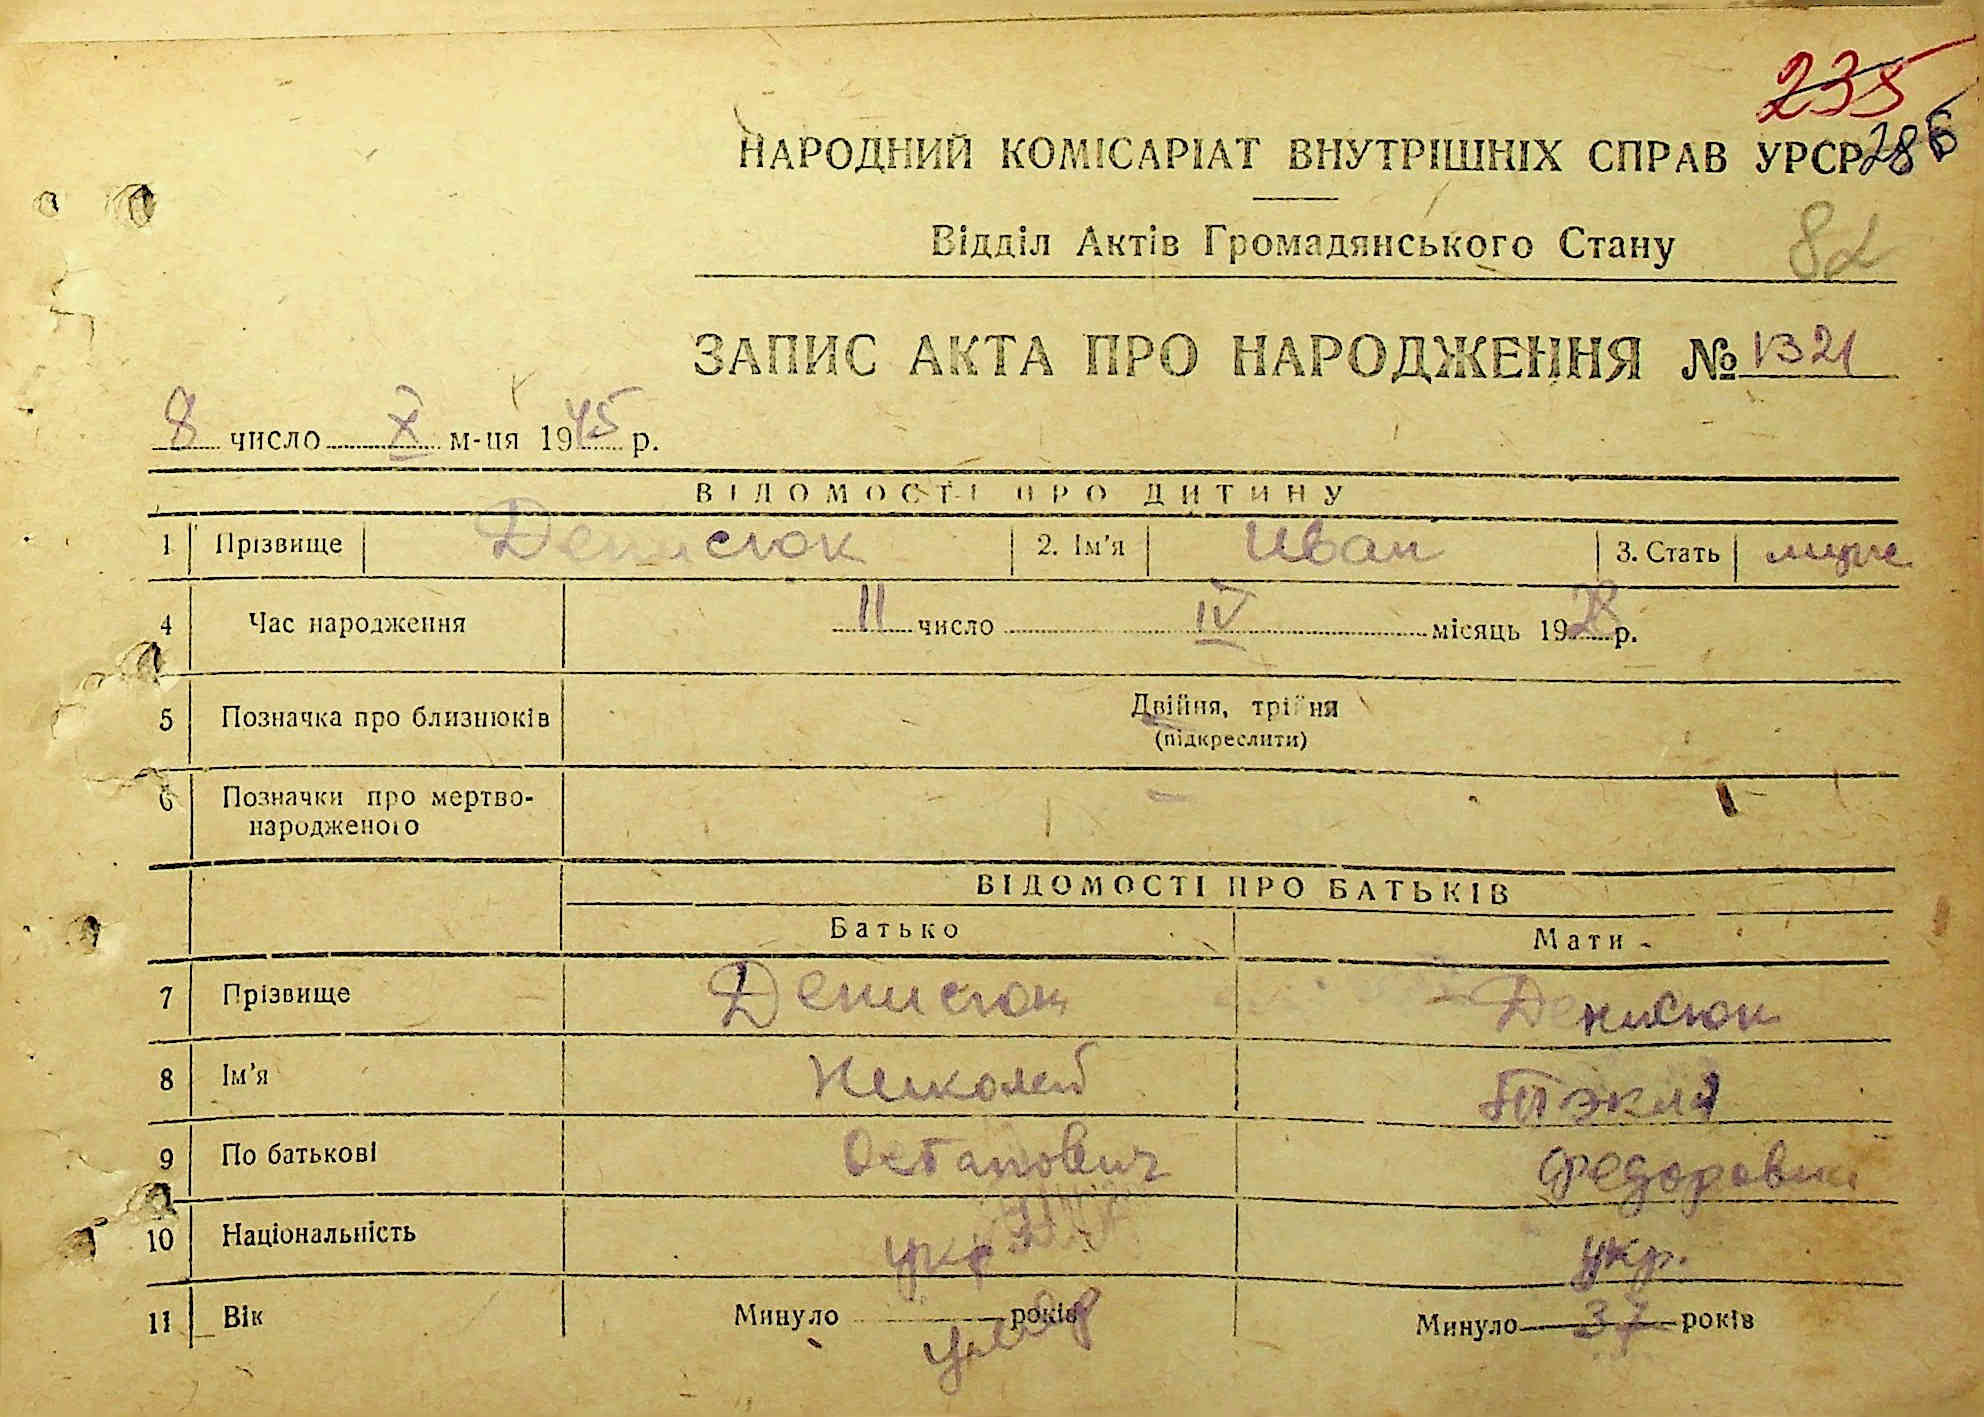 235
286
НАРОДНИЙ КОМІСАРІАТ ВНУТРІШНІХ СПРАВ УРСР
Відділ Актів Громадянського Стану
82
ЗАПИС АКТА ПРО НАРОДЖЕННЯ № 1321
8 число X м-ця 1945 р.
ВІДОМОСТІ ПРО ДИТИНУ
1 Прізвище Денисюк 2. Ім'я Иван 3. Стать муже
4 Час народження 11 число IV місяць 1928 р.
5 Позначка про близнюків Двійня, трійня
(підкреслити)
6 Позначки про мертво-
народженого –
ВІДОМОСТІ ПРО БАТЬКІВ
Батько Мати
7 Прізвище Денисюк Денисюк
8 Ім'я Николай Тэкля
9 По батькові Остапович Федоровна
10 Національність укр укр.
11 Вік Минуло умер років Минуло 37 років